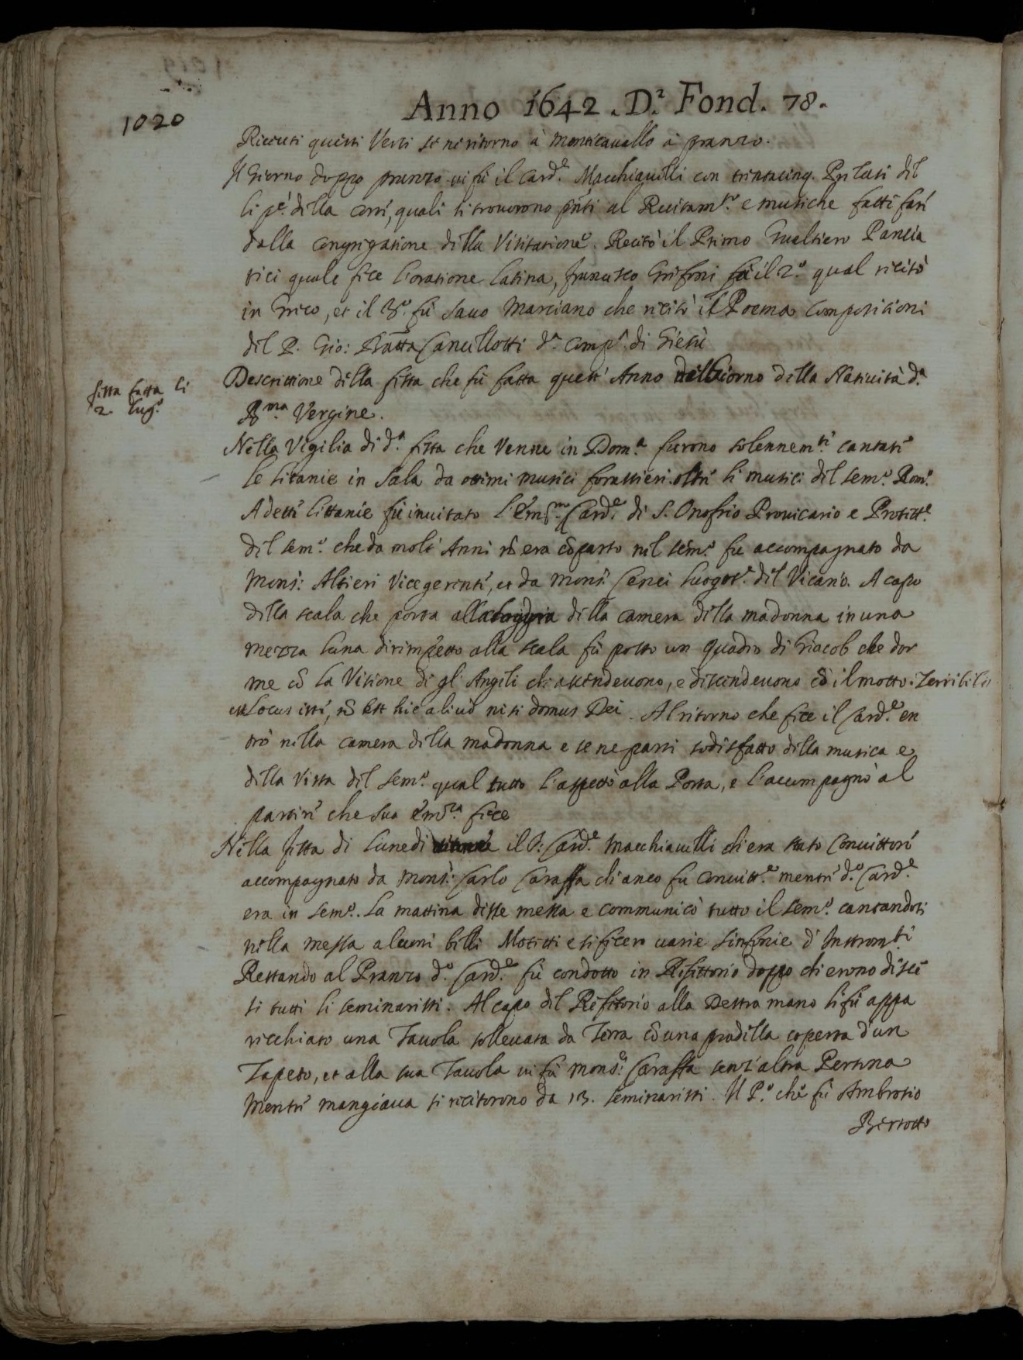 1020
Anno 1642. D.ª Fond. 78.
Riceuti questi Versi se ne ritornò à Montecauallo à pranzo.
Il Giorno doppo pranzo ui fù il Card.e Macchiauelli con trentacinq. Prelati del
li p.i della Corte, quali si trouorono p̃nti al Recitam.to e musiche fatti fare
dalla Congregatione della Visitatione. Recitò il Primo Gualtiero Pancia
tici quale fece l'oratione latina, francesco Grifoni fù il 2.º qual recitò
in Greco, et il 3.º fù Sauo Marciano che recitò il Poema Compositioni
del P. Gio: Batta Cancellotti d.ª Comp.ª di Giesù
festa fatta li
2. lug.º
Descrittione della festa che fù fatta quest' Anno nel Giorno della Natiuità d.ª
B.ma Vergine.
Nella Vigilia di d.ª festa che venne in Dom.ca furono solennem.te cantate
le litanie in Sala da ottimi musici forastieri oltre li musici del sem.º Rom.º
A dette littanie fù inuitato l'Em̃.mo Card.e di S. Onofrio Prouicario e Protett.e
del sem.º che da molti Anni nõ era cõparso nel sem.º fu accompagnato da
Mons.r Altieri Vicegerente, et da mons.r Cenci luogot.e del Vicario. A capo
della scala che porta alla loggia della camera della madonna in una
mezza luna dirimpetto alla scala fù posto un quadro di Giacob che dor
me cõ la Visione de gl'Angeli che ascendeuono, e discendeuono cõ il motto. Terribilis
est locus iste, nõ est hic aliud nisi domus Dei. Al ritorno che fece il Card.e en
trò nella camera della madonna e se ne partì sodisfatto della musica e
della vista del sem.º qual tutto l'aspettò alla Porta, e l'accompagnò al
partire che sua Em̃.za fece
Nella festa di lunedì il S. Card.e Macchiauelli ch'era stato Conuittore
accompagnato da Mons.r Carlo Caraffa ch'anco fu conuitt.e mentre d.º Card.e
era in sem.º. La mattina disse messa e communicò tutto il sem.º cantandosi
nella messa alcuni belli Motetti e si fecero uarie sinfonie d'Instrom.ti
Restando al Pranzo d.º Card.e fù condotto in Refettorio doppo ch'erono disce
si tutti li seminaristi. Al capo del Refettorio alla Destra mano li fù appa
recchiato una Tauola solleuata da Terra cõ una predella coperta d'un
Tapeto, et alla sua Tauola ui fù mons.r Caraffa senz'altra Persona
Mentre mangiaua si recitorono da 13. seminaristi. Il P.º che fù Ambrosio
Bertotto